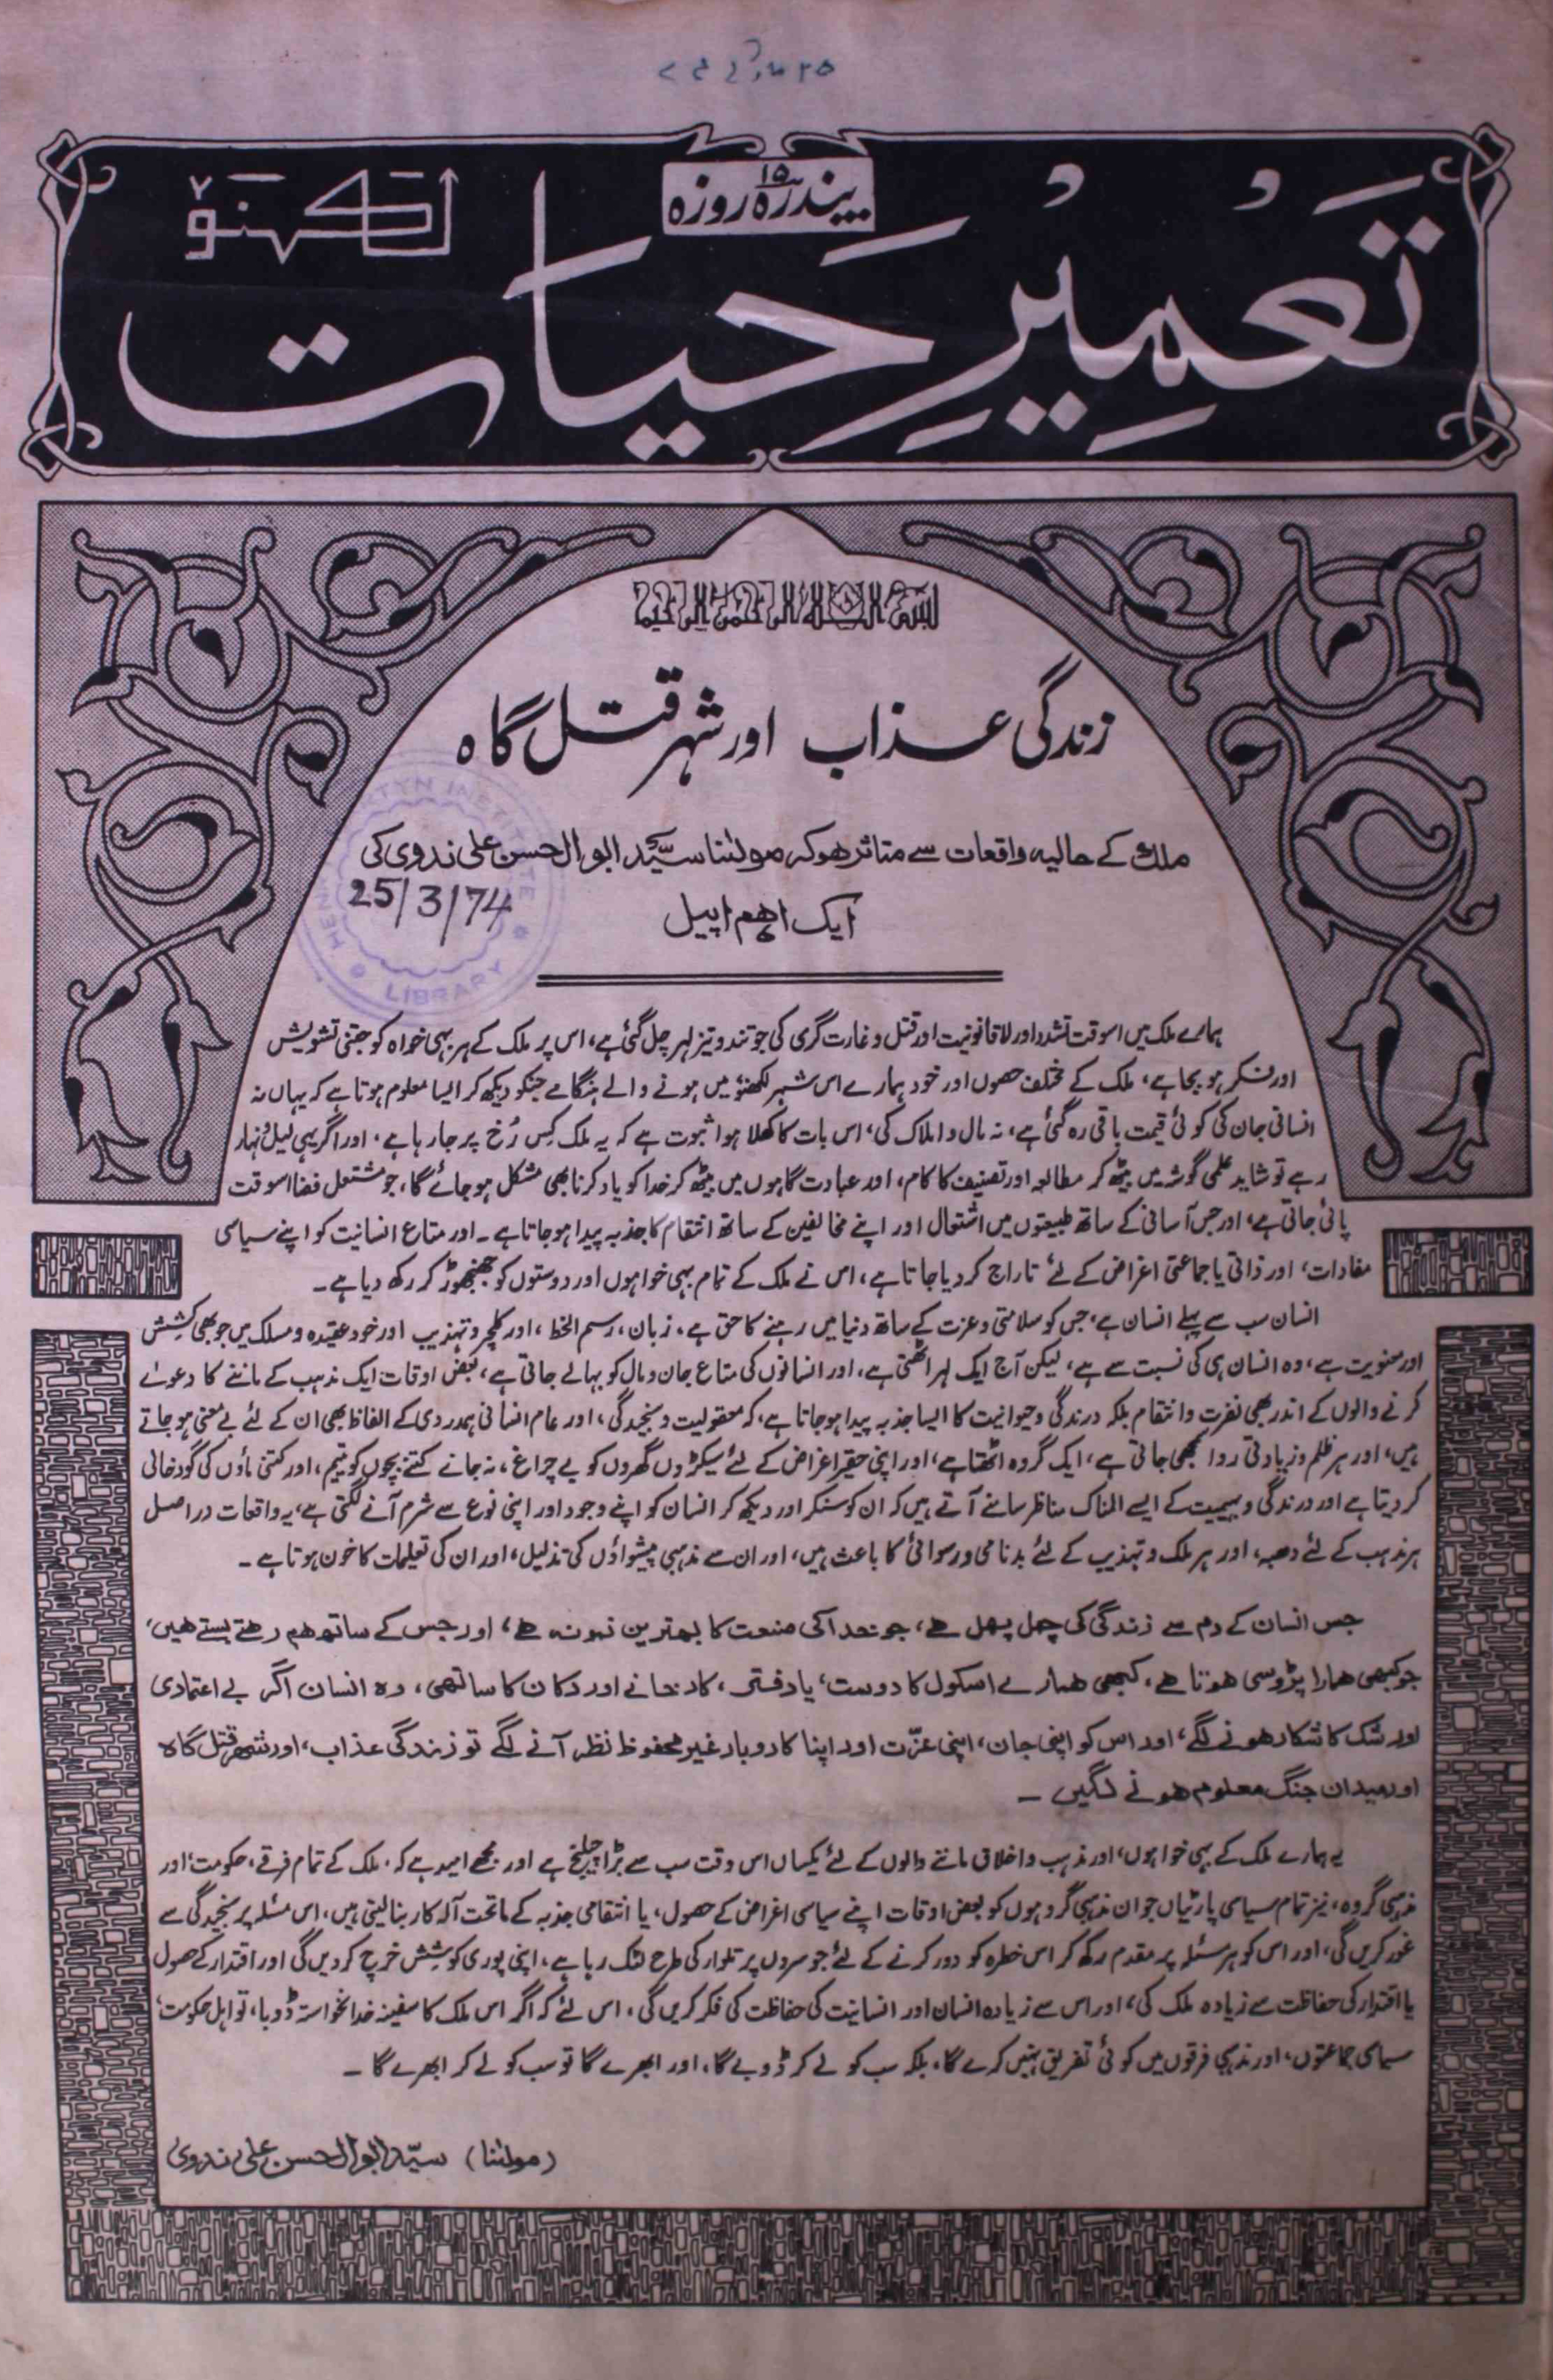 ۲۵ مارچ ۷۴ء
پندرہ ۱۵ روزہ
تعمیرِ حیات
لکھنؤ
بسم اللہ الرحمن الرحیم
زندگی عذاب اور شہر قتل گاہ
ملک کے حالیہ واقعات سے متاثر ہوکر مولٰنا سیّد ابوالحسن علی ندوی کی
25/3/74
ایک اہم اپیل
INSTITUTE
LIBRARY
ہمارے ملک میں اسوقت تشدد اور لاقانونیت اور قتل و غارت گری کی جو تند و تیز لہر چل گئی ہے، اس پر ملک کے ہر بہی خواہ کو جتنی تشویش
اور فکر ہو بجا ہے، ملک کے مختلف حصوں اور خود ہمارے اس شہر لکھنؤ میں ہونے والے ہنگامے جنکو دیکھ کر ایسا معلوم ہوتا ہے کہ یہاں نہ
انسانی جان کی کوئی قیمت باقی رہ گئی ہے، نہ مال و املاک کی، اس بات کا کھلا ہوا ثبوت ہے کہ یہ ملک کس رُخ پر جا رہا ہے، اور اگر یہی لیل و نہار
رہے تو شاید علمی گوشہ میں بیٹھ کر مطالعہ اور تصنیف کا کام، اور عبادت گاہوں میں بیٹھ کر خدا کو یاد کرنا بھی مشکل ہو جائے گا، جو مشتعل فضا اسوقت
پائی جاتی ہے، اور جس آسانی کے ساتھ طبیعتوں میں اشتعال اور اپنے مخالفین کے ساتھ انتقام کا جذبہ پیدا ہو جاتا ہے۔ اور متاع انسانیت کو اپنے سیاسی
مفادات، اور ذاتی یا جماعتی اغراض کے لئے تاراج کر دیا جاتا ہے، اس نے ملک کے تمام بہی خواہوں اور دوستوں کو جھنجھوڑ کر رکھ دیا ہے۔
انسان سب سے پہلے انسان ہے، جس کو سلامتی و عزت کے ساتھ دنیا میں رہنے کا حق ہے، زبان، رسم الخط، اور کلچر و تہذیب اور خود عقیدہ و مسلک میں جو بھی کشِش
اور معنویت ہے، وہ انسان ہی کی نسبت سے ہے، لیکن آج ایک لہر اٹھتی ہے، اور انسانوں کی متاع جان و مال کو بہالے جاتی ہے، بعض اوقات ایک مذہب کے ماننے کا دعوے
کرنے والوں کے اندر بھی نفرت و انتقام بلکہ درندگی و حیوانیت کا ایسا جذبہ پیدا ہو جاتا ہے، کہ معقولیت و سنجیدگی، اور عام انسانی ہمدردی کے الفاظ بھی ان کے لئے بے معنی ہو جاتے
ہیں، اور ہر ظلم و زیادتی روا سمجھی جاتی ہے، ایک گروہ اٹھتا ہے، اور اپنی حقیر اغراض کے لئے سیکڑوں گھروں کو بے چراغ، نہ جانے کتنے بچوں کو یتیم، اور کتنی ماؤں کی گود خالی
کر دیتا ہے اور درندگی و بہیمیت کے ایسے المناک مناظر سامنے آتے ہیں کہ ان کو سنکر اور دیکھ کر انسان کو اپنے وجود اور اپنی نوع سے شرم آنے لگتی ہے، یہ واقعات در اصل
ہر مذہب کے لئے دھبہ، اور ہر ملک و تہذیب کے لئے بدنامی و رسوائی کا باعث ہیں، اور ان سے مذہبی پیشواؤں کی تذلیل، اور ان کی تعلیمات کا خون ہوتا ہے۔
جس انسان کے دم سے زندگی کی چہل پہل ہے، جو خدا کی صنعت کا بہترین نمونہ ہے، اور جس کے ساتھ ہم رہتے بستے ہیں،
جو کبھی ہمارا پڑوسی ہوتا ہے، کبھی ہمارے اسکول کا دوست، یا دفتر، کارخانے اور دکان کا ساتھی، وہ انسان اگر بے اعتمادی
اور شک کا شکار ہونے لگے، اور اس کو اپنی جان، اپنی عزّت اور اپنا کاروبار غیر محفوظ نظر آنے لگے تو زندگی عذاب، اور شہر قتل گاہ
اور میدان جنگ معلوم ہونے لگیں۔
یہ ہمارے ملک کے بہی خواہوں، اور مذہب و اخلاق ماننے والوں کے لئے یکساں اس وقت سب سے بڑا چیلنج ہے اور مجھے امید ہے کہ، ملک کے تمام فرقے، حکومت، اور
مذہبی گروہ، نیز تمام سیاسی پارٹیاں جو ان مذہبی گروہوں کو بعض اوقات اپنے سیاسی اغراض کے حصول، یا انتقامی جذبہ کے ماتحت آلہ کار بنالیتی ہیں، اس مسئلہ پر سنجیدگی سے
غور کریں گی، اور اس کو ہر مسئلہ پر مقدم رکھ کر اس خطرہ کو دور کرنے کے لئے جو سروں پر تلوار کی طرح لٹک رہا ہے، اپنی پوری کوشش خرچ کر دیں گی اور اقتدار کے حصول
یا اقتدار کی حفاظت سے زیادہ ملک کی، اور اس سے زیادہ انسان اور انسانیت کی حفاظت کی فکر کریں گی، اس لئے کہ اگر اس ملک کا سفینہ خدانخواستہ ڈوبا، تو اہل حکومت،
سیاسی جماعتوں، اور مذہبی فرقوں میں کوئی تفریق نہیں کرے گا، بلکہ سب کو لے کر ڈوبے گا، اور ابھرے گا تو سب کو لے کر ابھرے گا۔
(مولٰنا) سیّد ابوالحسن علی ندوی